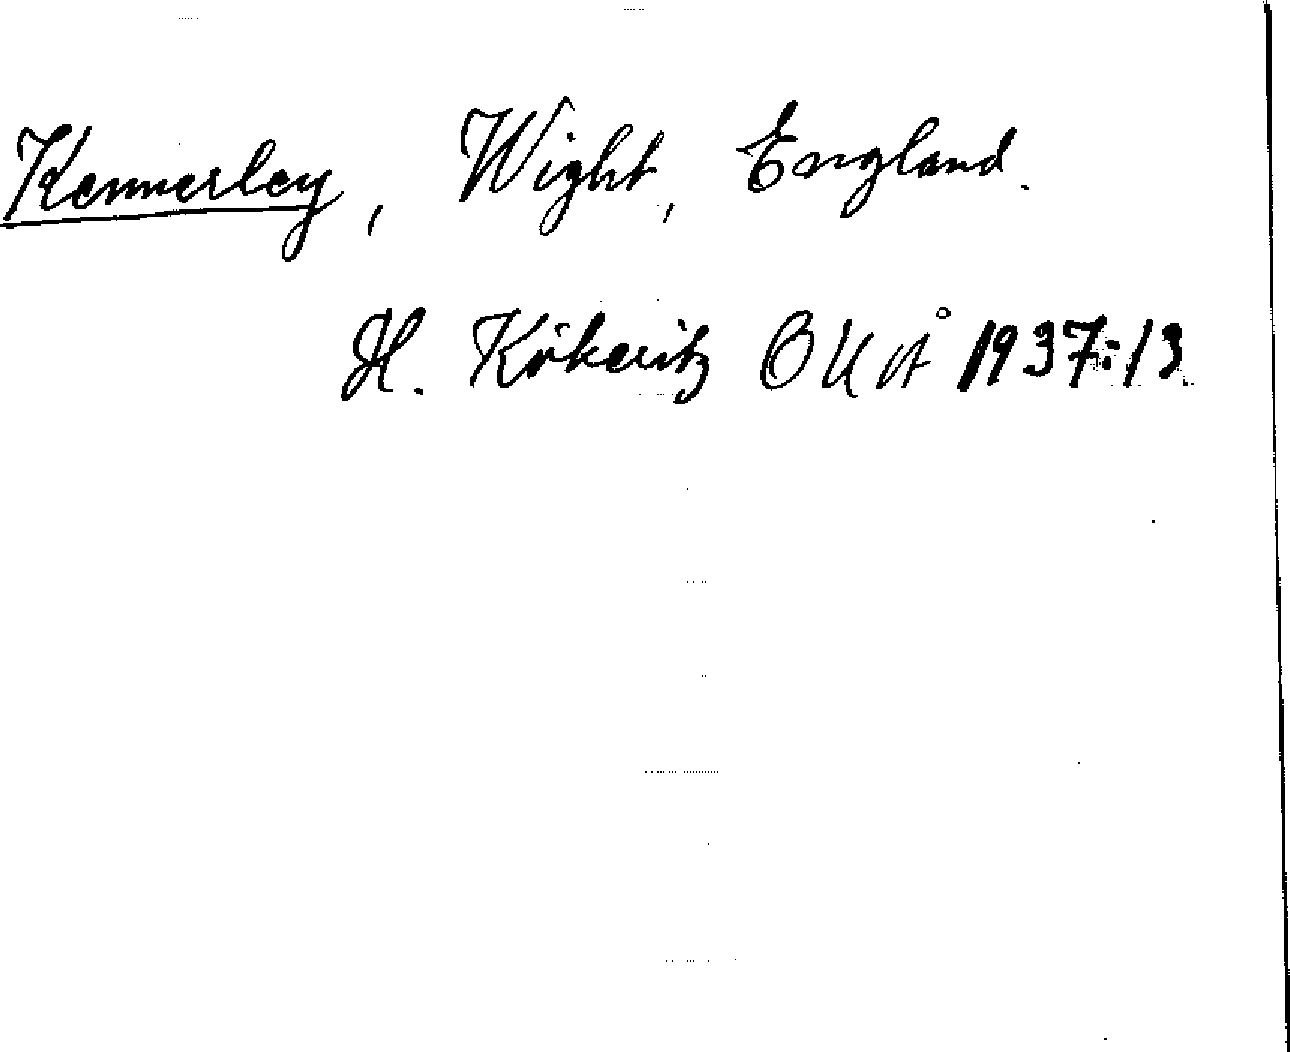 Kennerley, Wight, England.
H. Kökeritz OUÅ 1937:13.